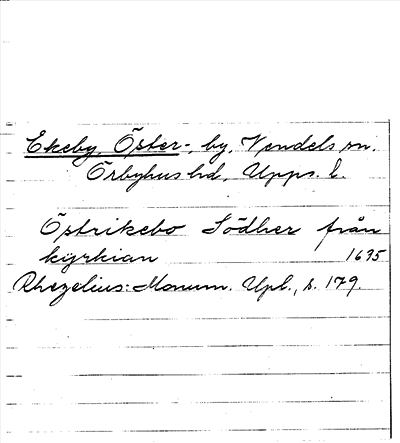 Ekeby, Öster-, by, Vendels sn.
Örbyhus hd, Upps. l.
Östrikebo Södher från
kyrkian 1635
Rhezelius: Monum. Upl., s. 179.